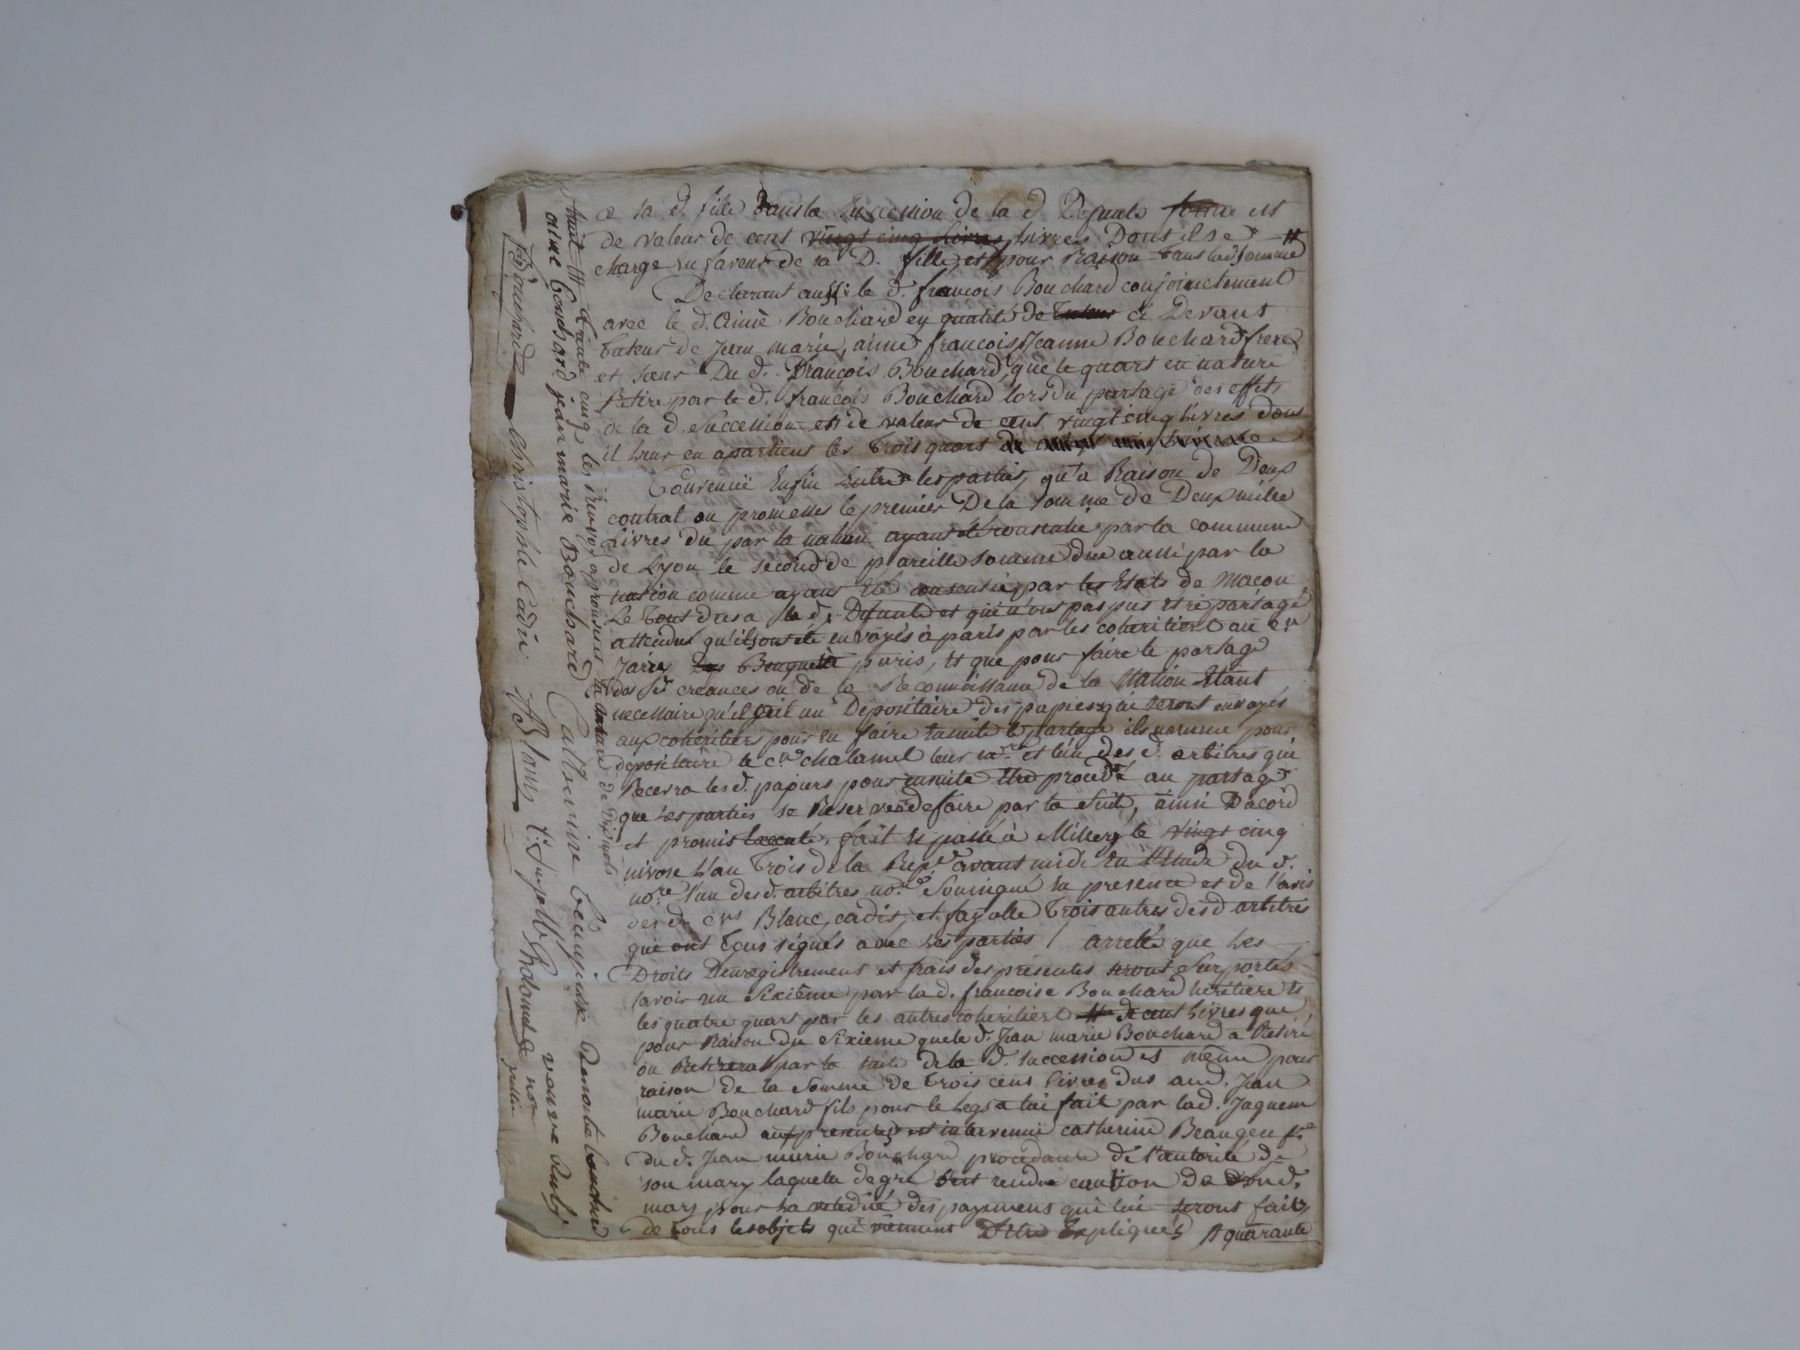 a sa d. fille dans la succession de la d. Defunte somme est
de valeur de cent vingt cinq livres livres Dont il se
charge en faveur de sa D. fille et pour raison dans lad. somme
Declarant aussi le d. françois Bouchard conjoinctement
avec le d. Aimé Bouchard en qualité de tuteur cè Devant
tuteur de Jean marie, aimé françois Jeanne Bouchard frere
et sœur Du d. François Bouchard, que le quart en nature
retiré par le d. françois Bouchard lors du partage des effets
de la d. succession est de valeur de cent vingt cinq livres dons
il leur en apartient les trois quart de
Convenüe Enfin Entre les parties, qu'a Raison de Deux
contrat ou promesses le premier De la somme de Deux mille
Livres du par la nation ayant été consentie par la commune
de Lyon le second de pareille somme due aussi par la
nation comme ayant été consentie par les Etats de Macon
Le tout dus a la d. Defunte et qui n'ont pas pus etre partagé
attendu qu'ils ont été envoyés à paris par les coheritiers au cen
paris, et que pour faire le partage
des d. creances ou de la Reconnoissance de la Nation Etant
necessaire qu'il soit un Depositaire des papiers qui seront envoyés
aux coheritiers pour en faire ensuite le partage ils nomme pour
depositaire le cen chalamel leur nore et l'un des d. arbitres qui
Recevra les d. papiers pour ensuite etre procedé au partage
que les parties se Reservent de faire par la suite, ainsi Dacord
et promis Executé, fait et passé à Millery le vingt cinq
nivose l'an trois de la Repe avant midi en l'Etude du d.
nore l'un des d. arbitres nore soussigné en presence et de l'avis
des d. cns Blanc, cadis, et fayolle trois autres des d. arbitres
qui ont tous signés avec les parties / arretté que les
Droits Denregistrement et frais des presentes seront suportés
savoir un sixième par la d. francoise Bouchard heritiere et
les quatre quart par les autres coheritiers # de cent livres que
pour raison du sixieme que le d. Jean marie Bouchard a Retiré
ou Retirera par la suite de la d. succession et meme pour
raison de la somme de trois cens livres dus aud. Jean
marie Bouchard fils pour le legs a lui fait par lad. Jaqueme
Bouchard aux presentes est intervenue catherine Beaujeu fe
du d. Jean marie Bouchard procedante de l'autorité de
son mary laquelle de gré s'est rendue caution de son d.
mary pour la validité des payemens qui lui seront faits
de tous les objets qui viennent Detre Expliqués # quarante
huit # trente cinq les renvoy aprouvés et la rature de
aimé bouchard jean marie Bouchard Catherine beaujeux Benoite bouchard
f bouchard Christophe Cadis Blanc C. fayolle Chalamel nore